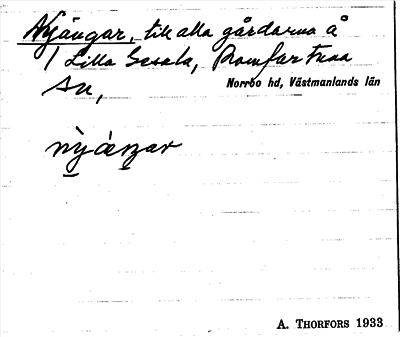 Nyängar, till alla gårdarna å
/ Lilla
Romfartuna
Sn,
Norrbo hd, Västmanlands län
A. THORFORS 1933